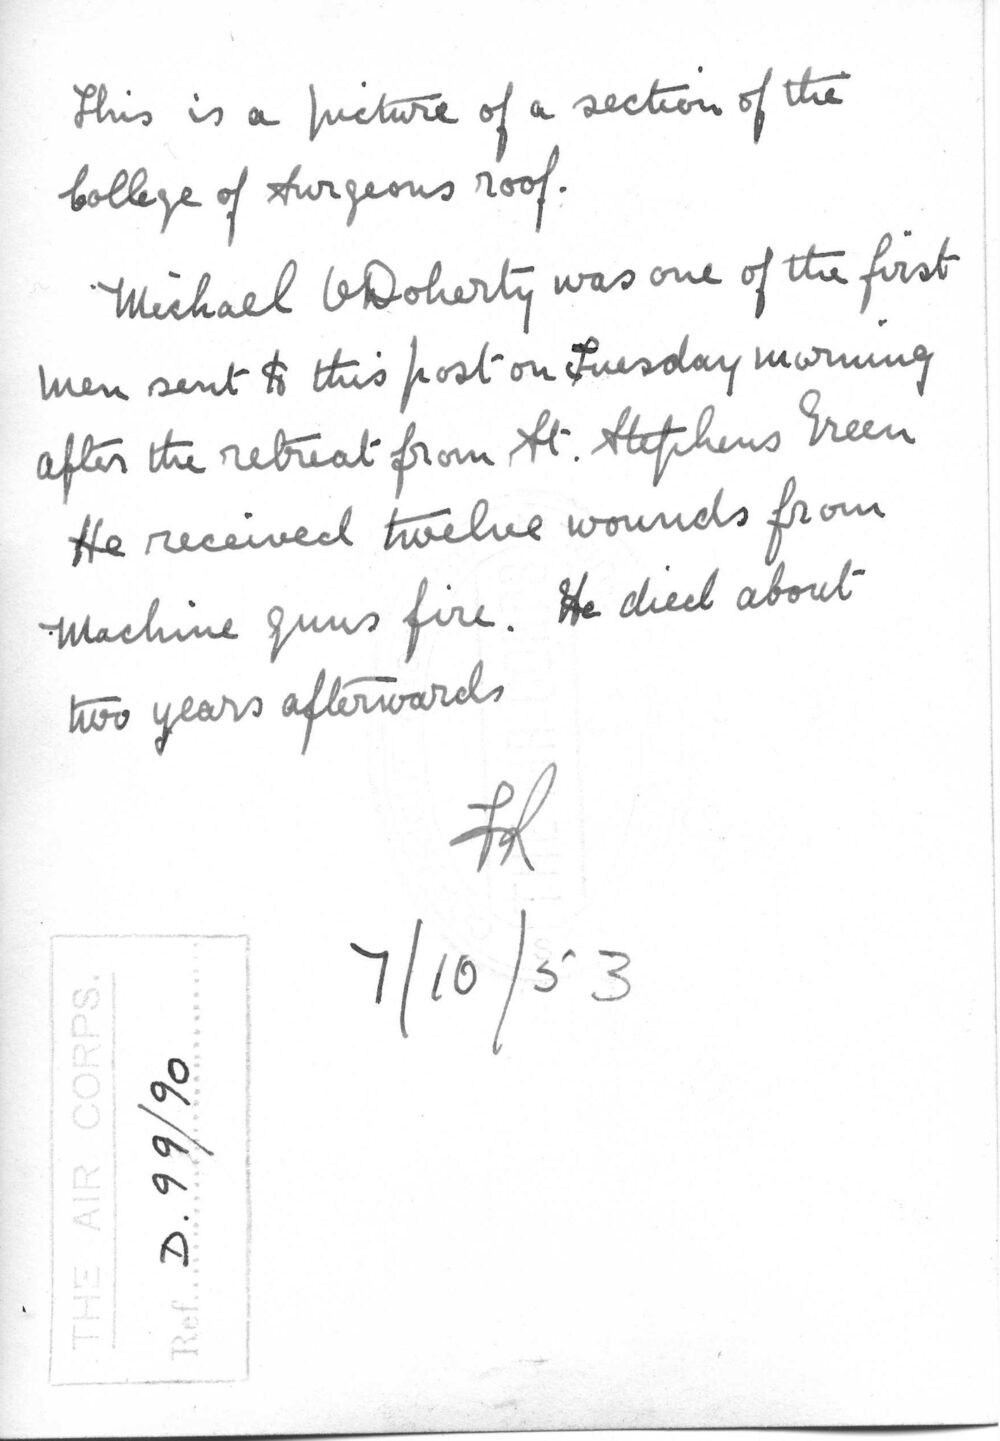 This is a picture of a section of the
College of Surgeons roof.
Michael O Doherty was one of the first
men sent to this post on Tuesday morning
after the retreat from St. Stephens Green
He received twelve wounds from
Machine guns fire. He died about
two years afterwards
FR
7/10/53
THE AIR CORPS.
Ref. D. 99/90